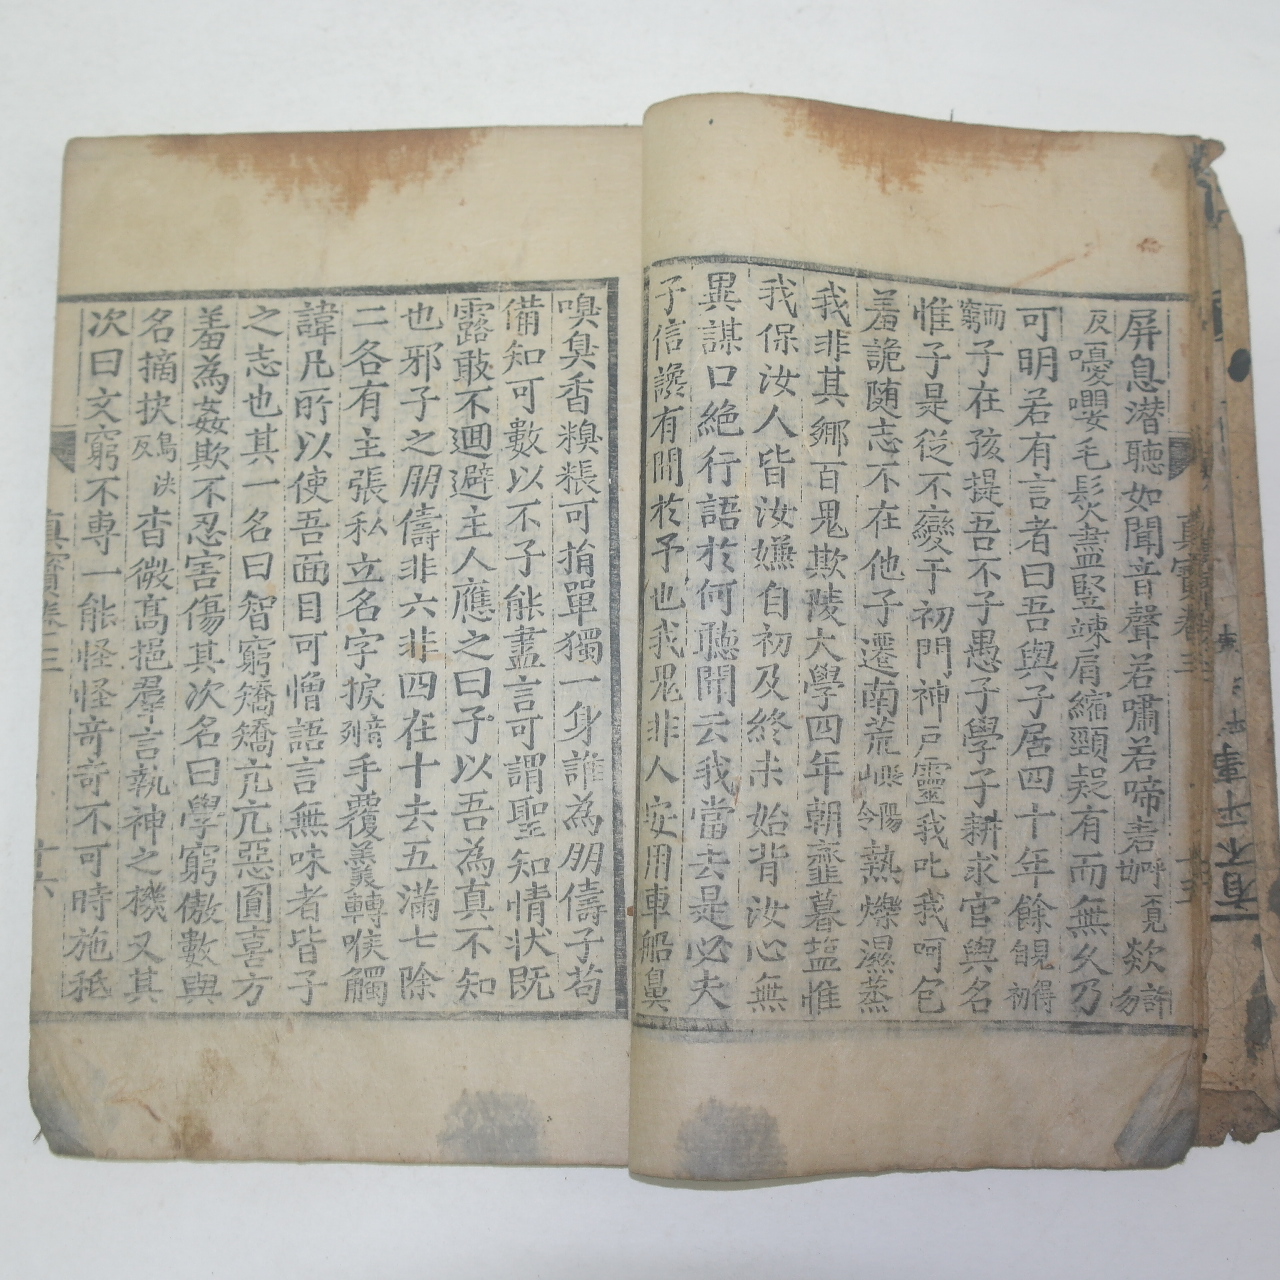 屏息潜聽如聞音聲若嘯若啼砉呼覓歘許勿
反嚘嚶毛髮盡竪竦肩縮頸疑有而無久乃
可明若有言者曰吾與子居四十年餘自初
子在孩提吾不子愚子學子耕求官與名
惟子是從不變于初門神户靈我叱我呵包
羞詭随志不在他子遷南荒熱爍濕蒸
我非其鄉百鬼欺陵大學四年朝虀暮塩惟
我保汝人皆汝嫌自初及終未始背汝心無
異謀口絶行語於何聽聞云我當去是必夫
子信讒有間於予也我鬼非人安用車船鼻
真寳卷三
嗅臭香糗粻可捐單獨一身誰為朋儔子苟
備知可數以不子能盡言可謂聖知情状既
露敢不迴避主人應之曰子以吾為真不知
也邪子之朋儔非六非四在十去五滿七除
二各有主張私立名字捩手覆羹轉喉觸
諱凡所以使吾面目可憎語言無味者皆子
之志也其一名曰智窮矯矯亢亢惡圓喜方
羞為姦欺不忍害傷其次名曰學窮傲數與
名摘抉杳微髙挹羣言執神之機又其
次曰文窮不専一能怪怪竒竒不可時施秪
真寳卷三
十六